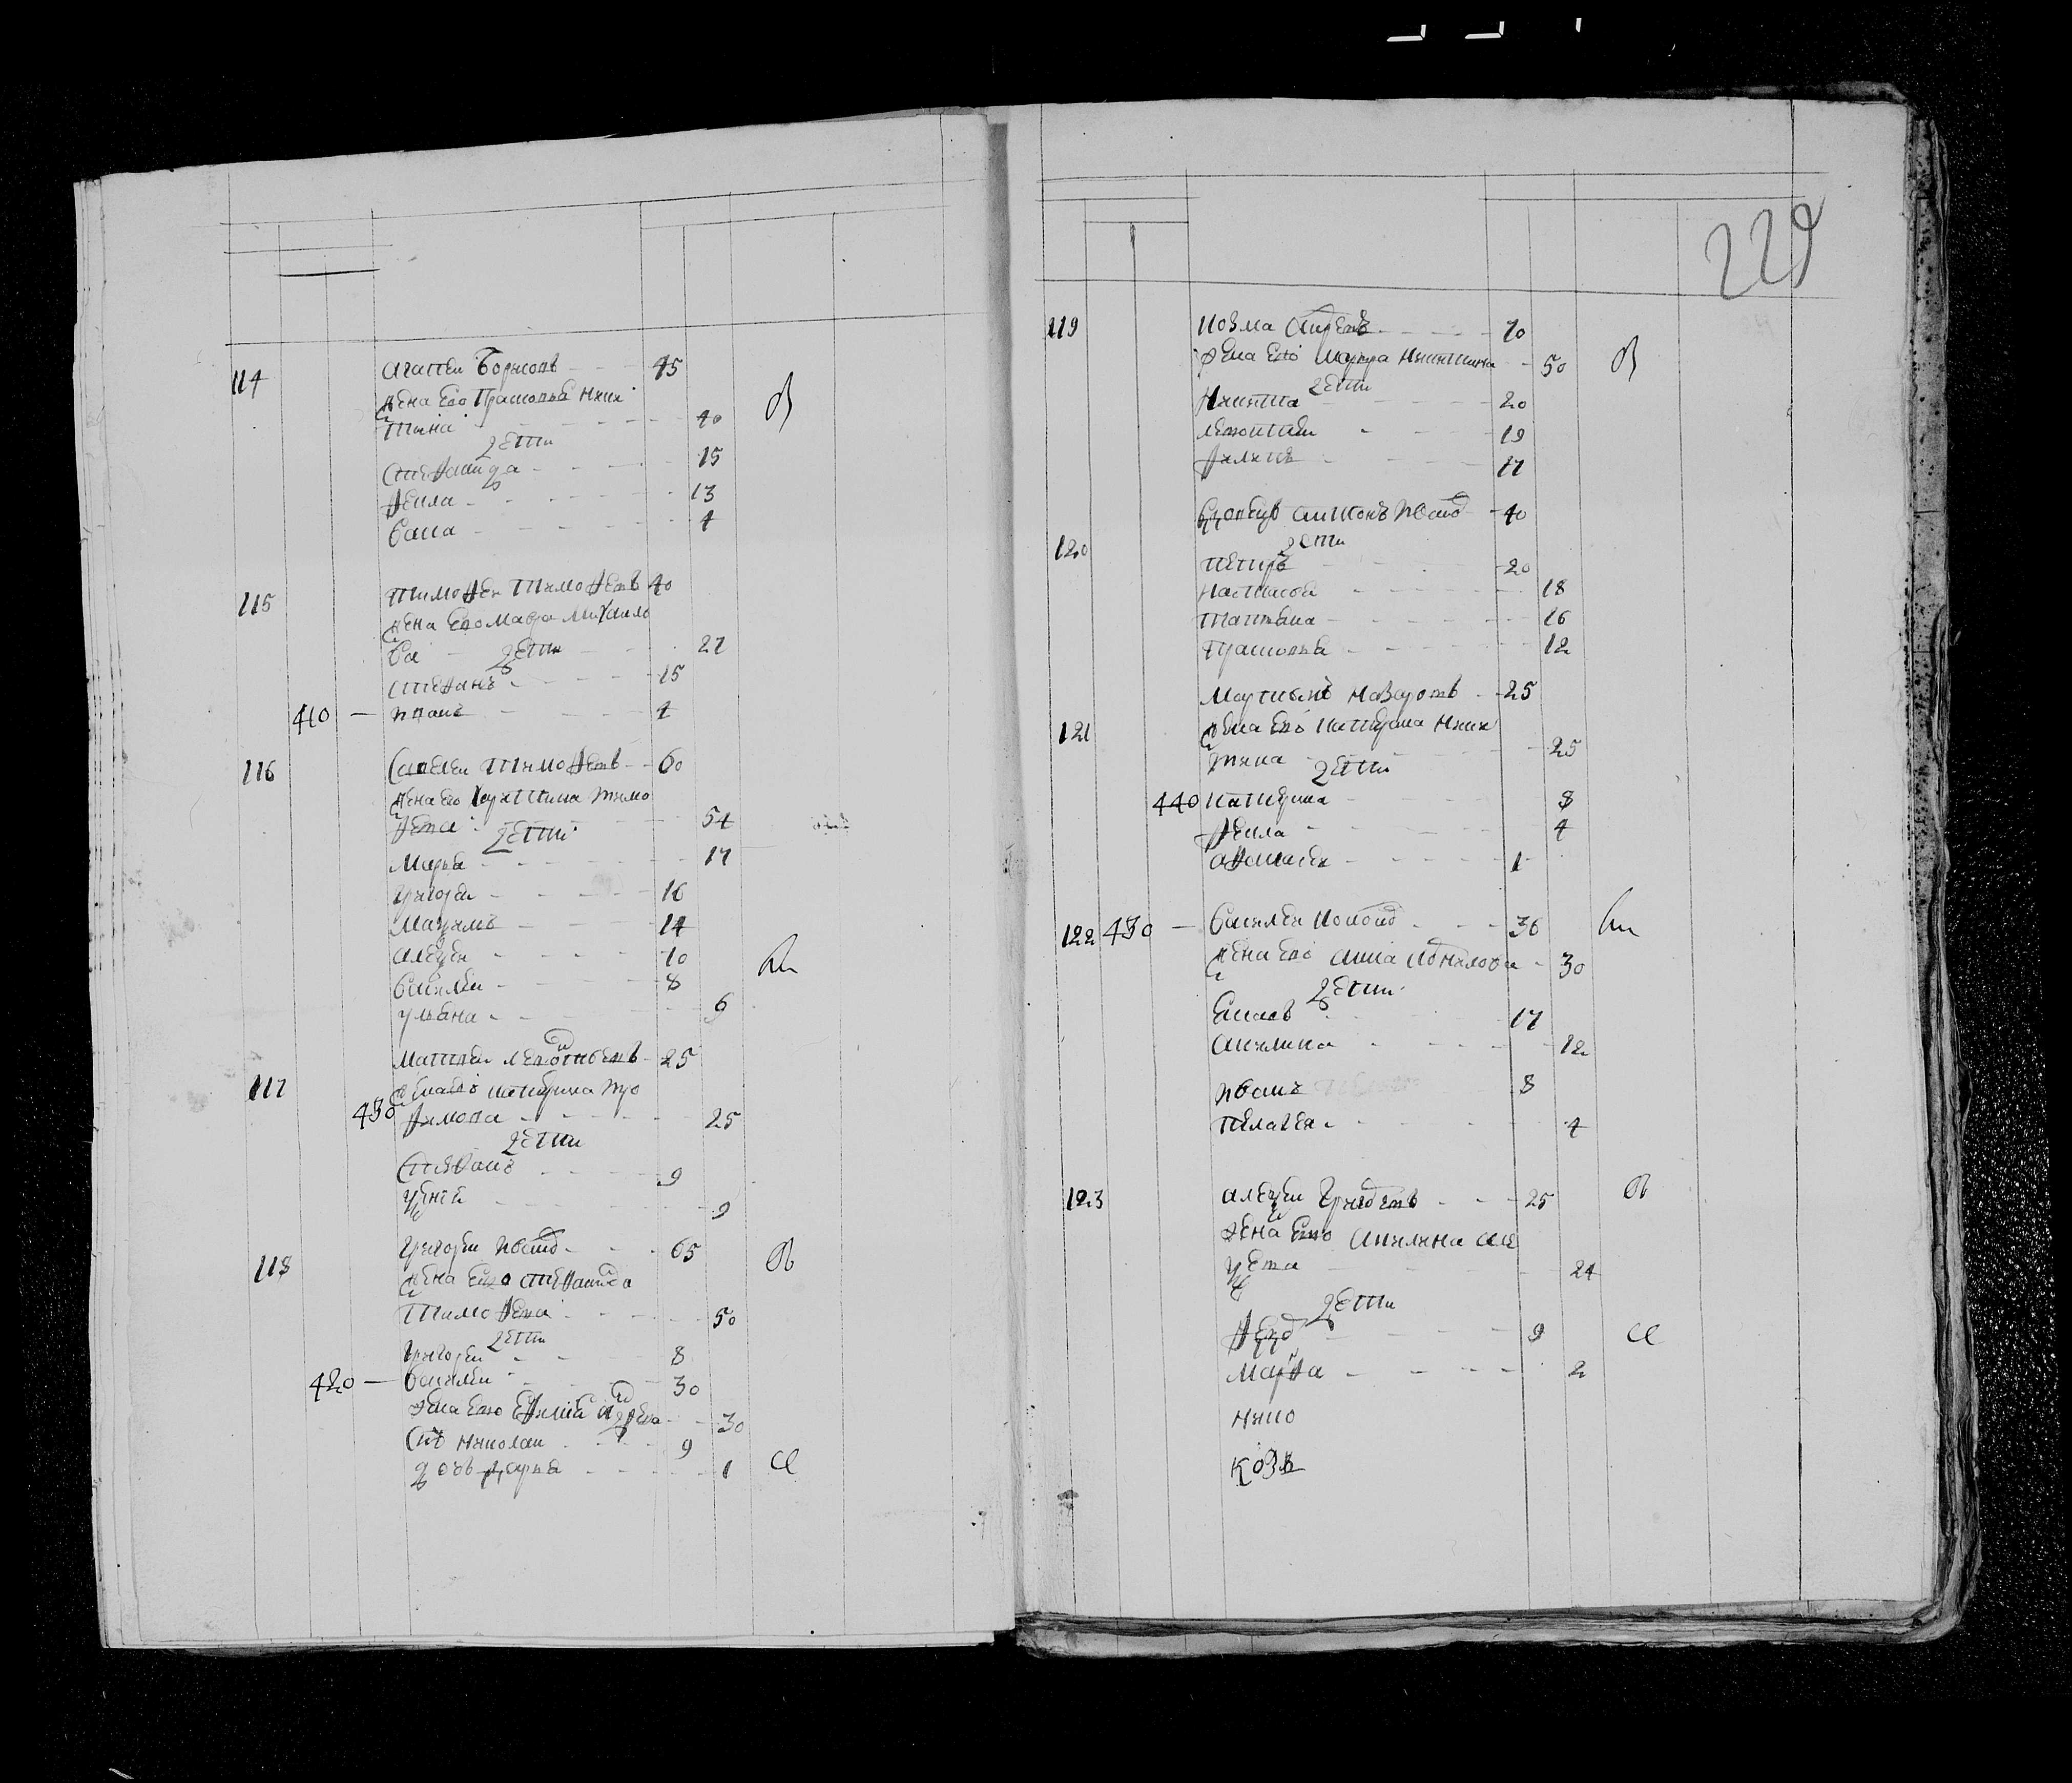 114 Агапъи Борисовъ 45
жена его Прасковья Ники
тина 40
дети
Степанида 15
Фекла 13
Васа 4
115 Тимофеи Тимофеевъ 40
жена его Мавра Михаило
ва 27
дети
Степанъ 15
410 — Иванъ 4
116 Савелеи Тимофеевъ 60
жена его Харитина Тимо
феева 54
дети
Марья 17
Григореи 16
Мазимъ 14
Алеѯеи 10
Василеи 8
Ульяна 6
Матвеи Леонтьевъ 25
117 жена его Катерина Тро
430 фимова 25
дети
Степанъ 9
Ѯения 9
118 Григореи Ивановъ 65
жена его Степанида
Тимофеева 50
дети
Григореи 8
420 — Василеи 30
жена его Ефимия Авдеева 30
Сынъ Николаи 9
дочь Дарья 1
229
119 Козма Андреевъ 70
жена его Мавра Никитина 50
дети
Никита 20
Леонтеи 19
Филипъ 17
Вдовецъ Антонъ Ивановъ 40
120 дети
Петръ 20
Настасея 18
Татьяна 16
Прасковья 12
Мартынъ Назаровъ 25
121 жена его Катерина Ники
тина 25
дети
440 Катерина 8
Фекла 4
Афонасеи 1
122 430 — Василеи Кононовъ 36
жена его Анна Корнилова 30
дети
Елисеи 17
Акилина 12
Иванъ 8
Пелагея 4
123 Алеѯеи Григорьевъ 25
жена его Акилина Але
ѯеева 24
дети
Федоръ 9
Марфа 2
Нико
Козь